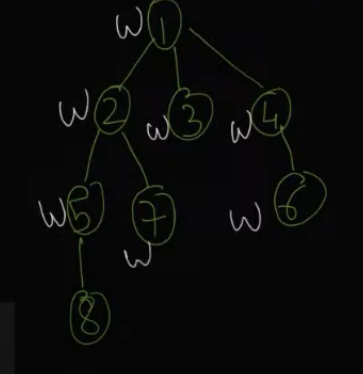 W 1
W 2 W 3 W 4
W 5 7 W 6
W
8